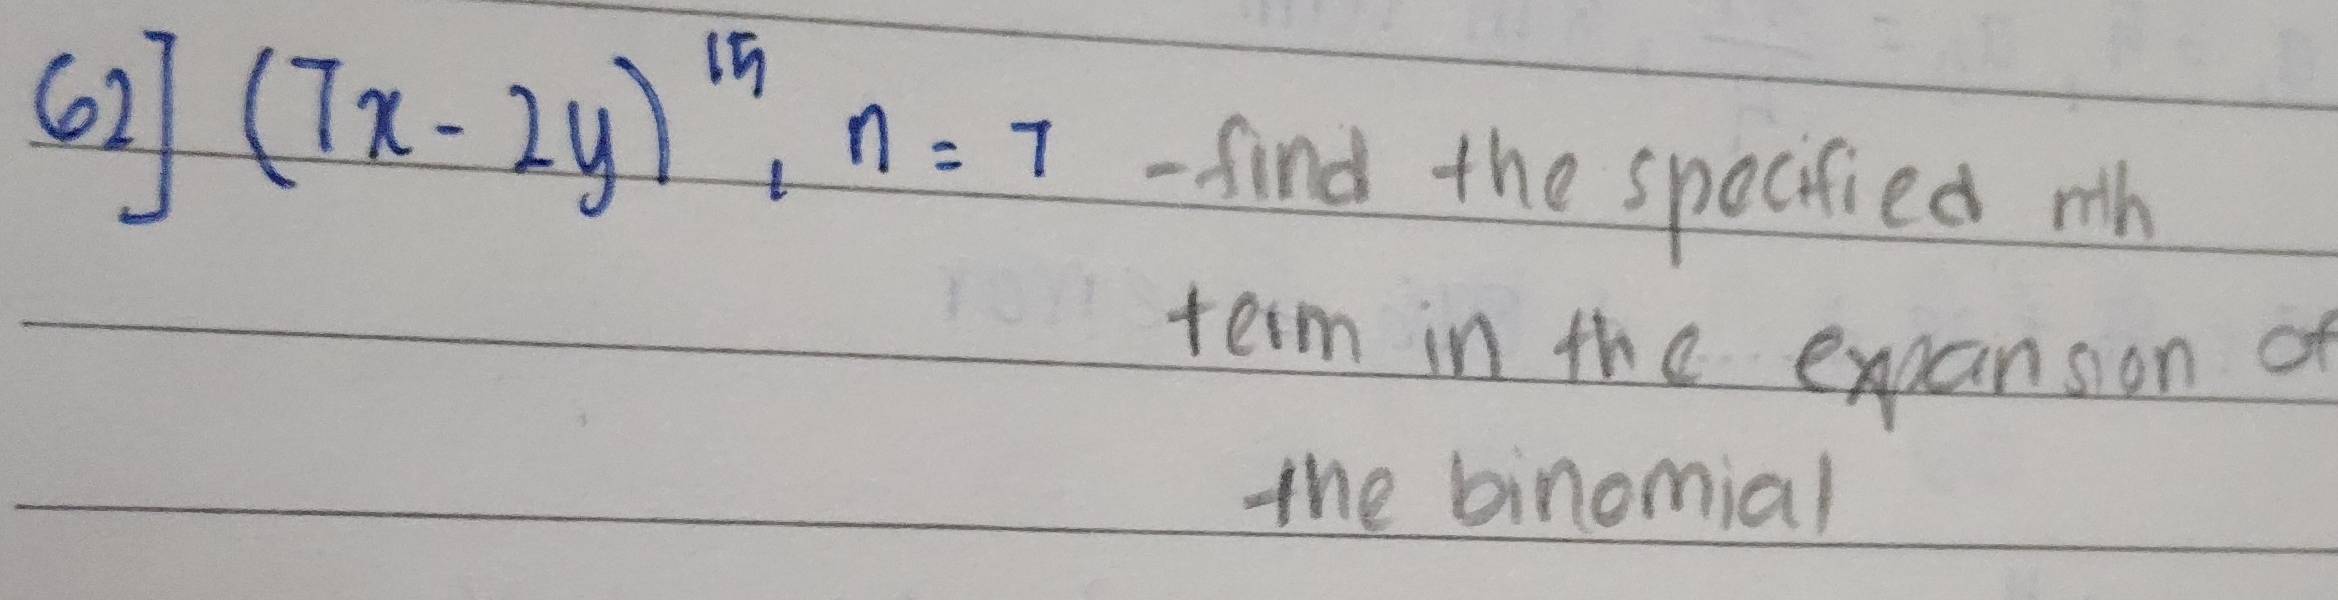 62] (7x - 2y)¹⁵, n = 7 - find the specified nth
term in the expansion of
the binomial